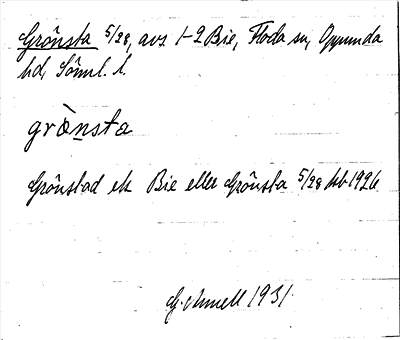 Grönsta 5/28, avs. 1-2 Bie, Floda sn, Oppunda
hd, Söml. l.
grö̀nsta
Grönstad ek Bie eller Grönsta 5/28 Jrb 1926
1931